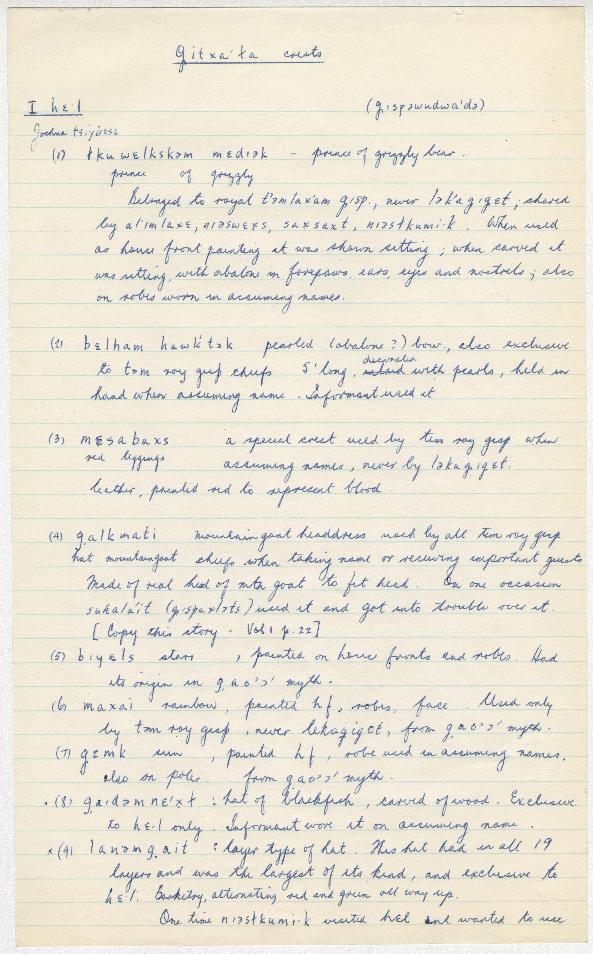 gitxa·ɫa crests
I hɛ·l (gispəwudwa'də)
Joshua tsiybɛsɛ
(1) ɫkuwɛlkskəm mɛdiək - prince of grizzly bear.
prince of grizzly
Belonged to royal t'əmlax'am gisp., never lək'agigɛt; shared
by a'l'mlaxɛ, niəswɛxs, saxsaxt, niəsɫkumi·k. When used
as house front painting it was shown sitting; when carved it
was sitting, with abalone in forepaws, ears, eyes and nostrels; also
on robes worn in assuming names.
(2) bɛlham hawk'tək pearled (abalone?) bow, also exclusive
to təm roy gisp chiefs 5' long, decorated with pearls, held in
hand when assuming name. Informant used it
(3) mɛsabaxs a special crest used by tim roy gisp when
red leggings assuming names, never by ləkagigɛt.
leather, painted red to represent blood.
(4) galkmati mountain goat headdress used by all tim roy gisp
hat mountaingoat chiefs when taking name or receiving important guests
Made of real head of mtn goat to fit head. On one occasion
sukala'it (gispaxlɔts) used it and got into trouble over it.
[Copy this story - Vol 1 p. 22]
(5) biyɛls stars , painted on house fronts and robes. Had
its origin in gaoɔɔ' myth.
(6) maxai rainbow, painted hf, robes, face. Used only
by təm roy gisp, never lɛkagigɛt, from gaoɔɔ' myth.
(7) gɛmk sun , painted hf, robe used in assuming names,
also on poles. from gaoɔɔ' myth.
x (8) gaidəmnɛ'xɫ : hat of blackfish, carved of wood. Exclusive
to hɛ·l only. Informant wore it on assuming name.
x (9) lanəmgait : layer type of hat. This hat had in all 19
layers and was the largest of its kind, and exclusive to
hɛ·l. Basketry, alternating red and green all way up.
One time niəsɫkumi·k visited hɛl and wanted to use